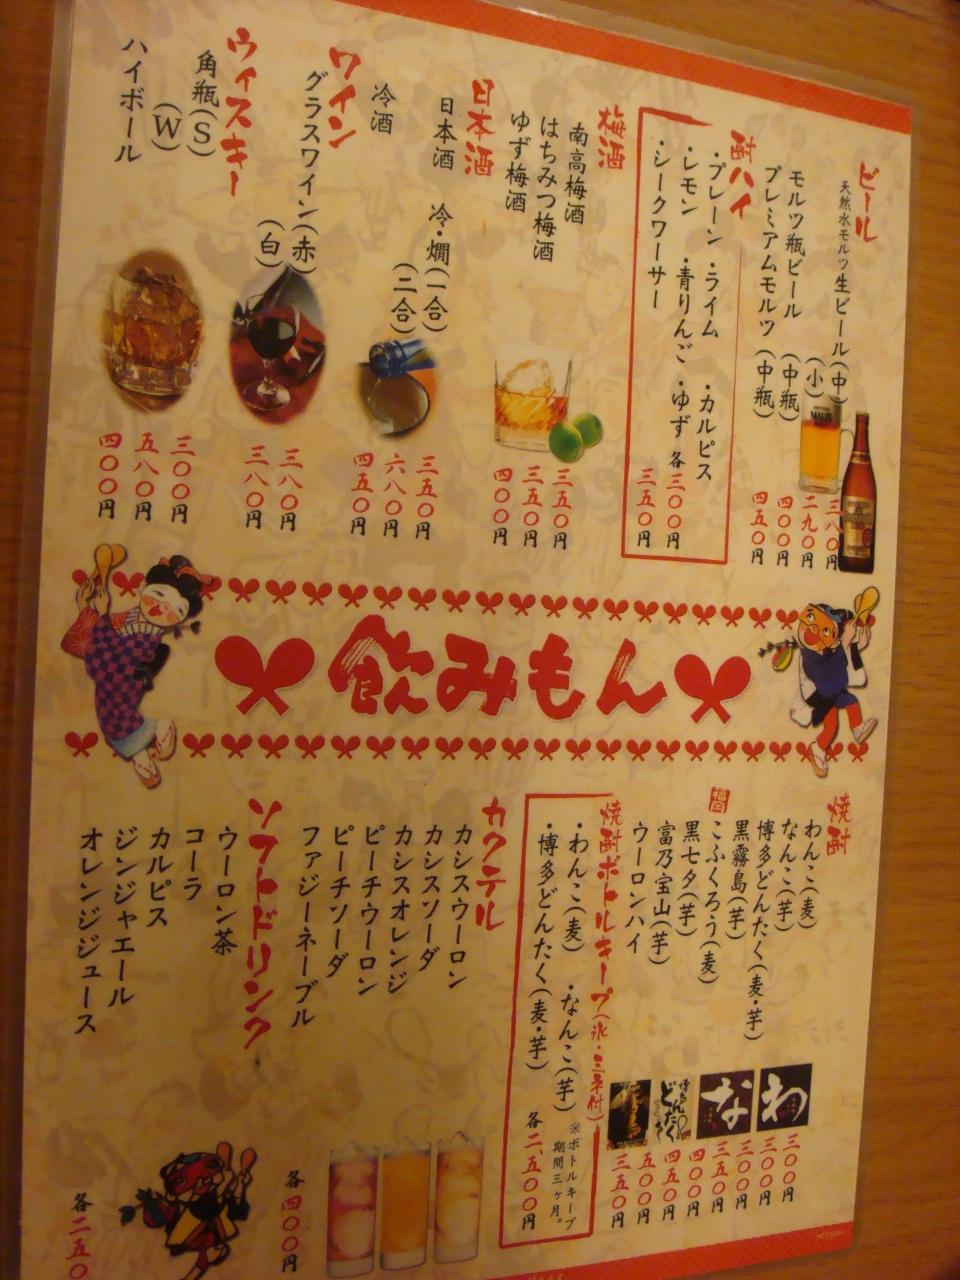 ビール
天然水モルツ生ビール(中)
(小)
モルツ瓶ビール (中瓶)
プレミアムモルツ (中瓶)
三八〇円
二九〇円
四〇〇円
四五〇円
酎ハイ
・プレーン ・ライム ・カルピス
・レモン ・青りんご ・ゆず 各三〇〇円
・シークワーサー 三五〇円
梅酒
南高梅酒 三五〇円
はちみつ梅酒 三五〇円
ゆず梅酒 四〇〇円
日本酒
日本酒 冷・燗(一合) 三五〇円
(二合) 六八〇円
冷酒 四五〇円
ワイン
グラスワイン(赤) 三八〇円
(白) 三八〇円
ウィスキー
角瓶(S) 三〇〇円
(W) 五八〇円
ハイボール 四〇〇円
飲みもん
焼酎
わんこ(麦) 三〇〇円
なんこ(芋) 三〇〇円
博多どんたく(麦・芋) 三〇〇円
黒霧島(芋) 三五〇円
福岡
こふくろう(麦) 四〇〇円
黒七夕(芋) 四五〇円
富乃宝山(芋) 五〇〇円
ウーロンハイ 三五〇円
わ
な
どんたく
焼酎ボトルキープ(氷・三条付)
・わんこ(麦) ・なんこ(芋)
・博多どんたく(麦・芋) 各二、五〇〇円
※ボトルキープ
期間三ヶ月。
カクテル
カシスウーロン
カシスソーダ
カシスオレンジ
ピーチウーロン
ピーチソーダ
ファジーネーブル
各四〇〇円
ソフトドリンク
ウーロン茶
コーラ
カルピス
ジンジャエール
オレンジジュース
各二五〇